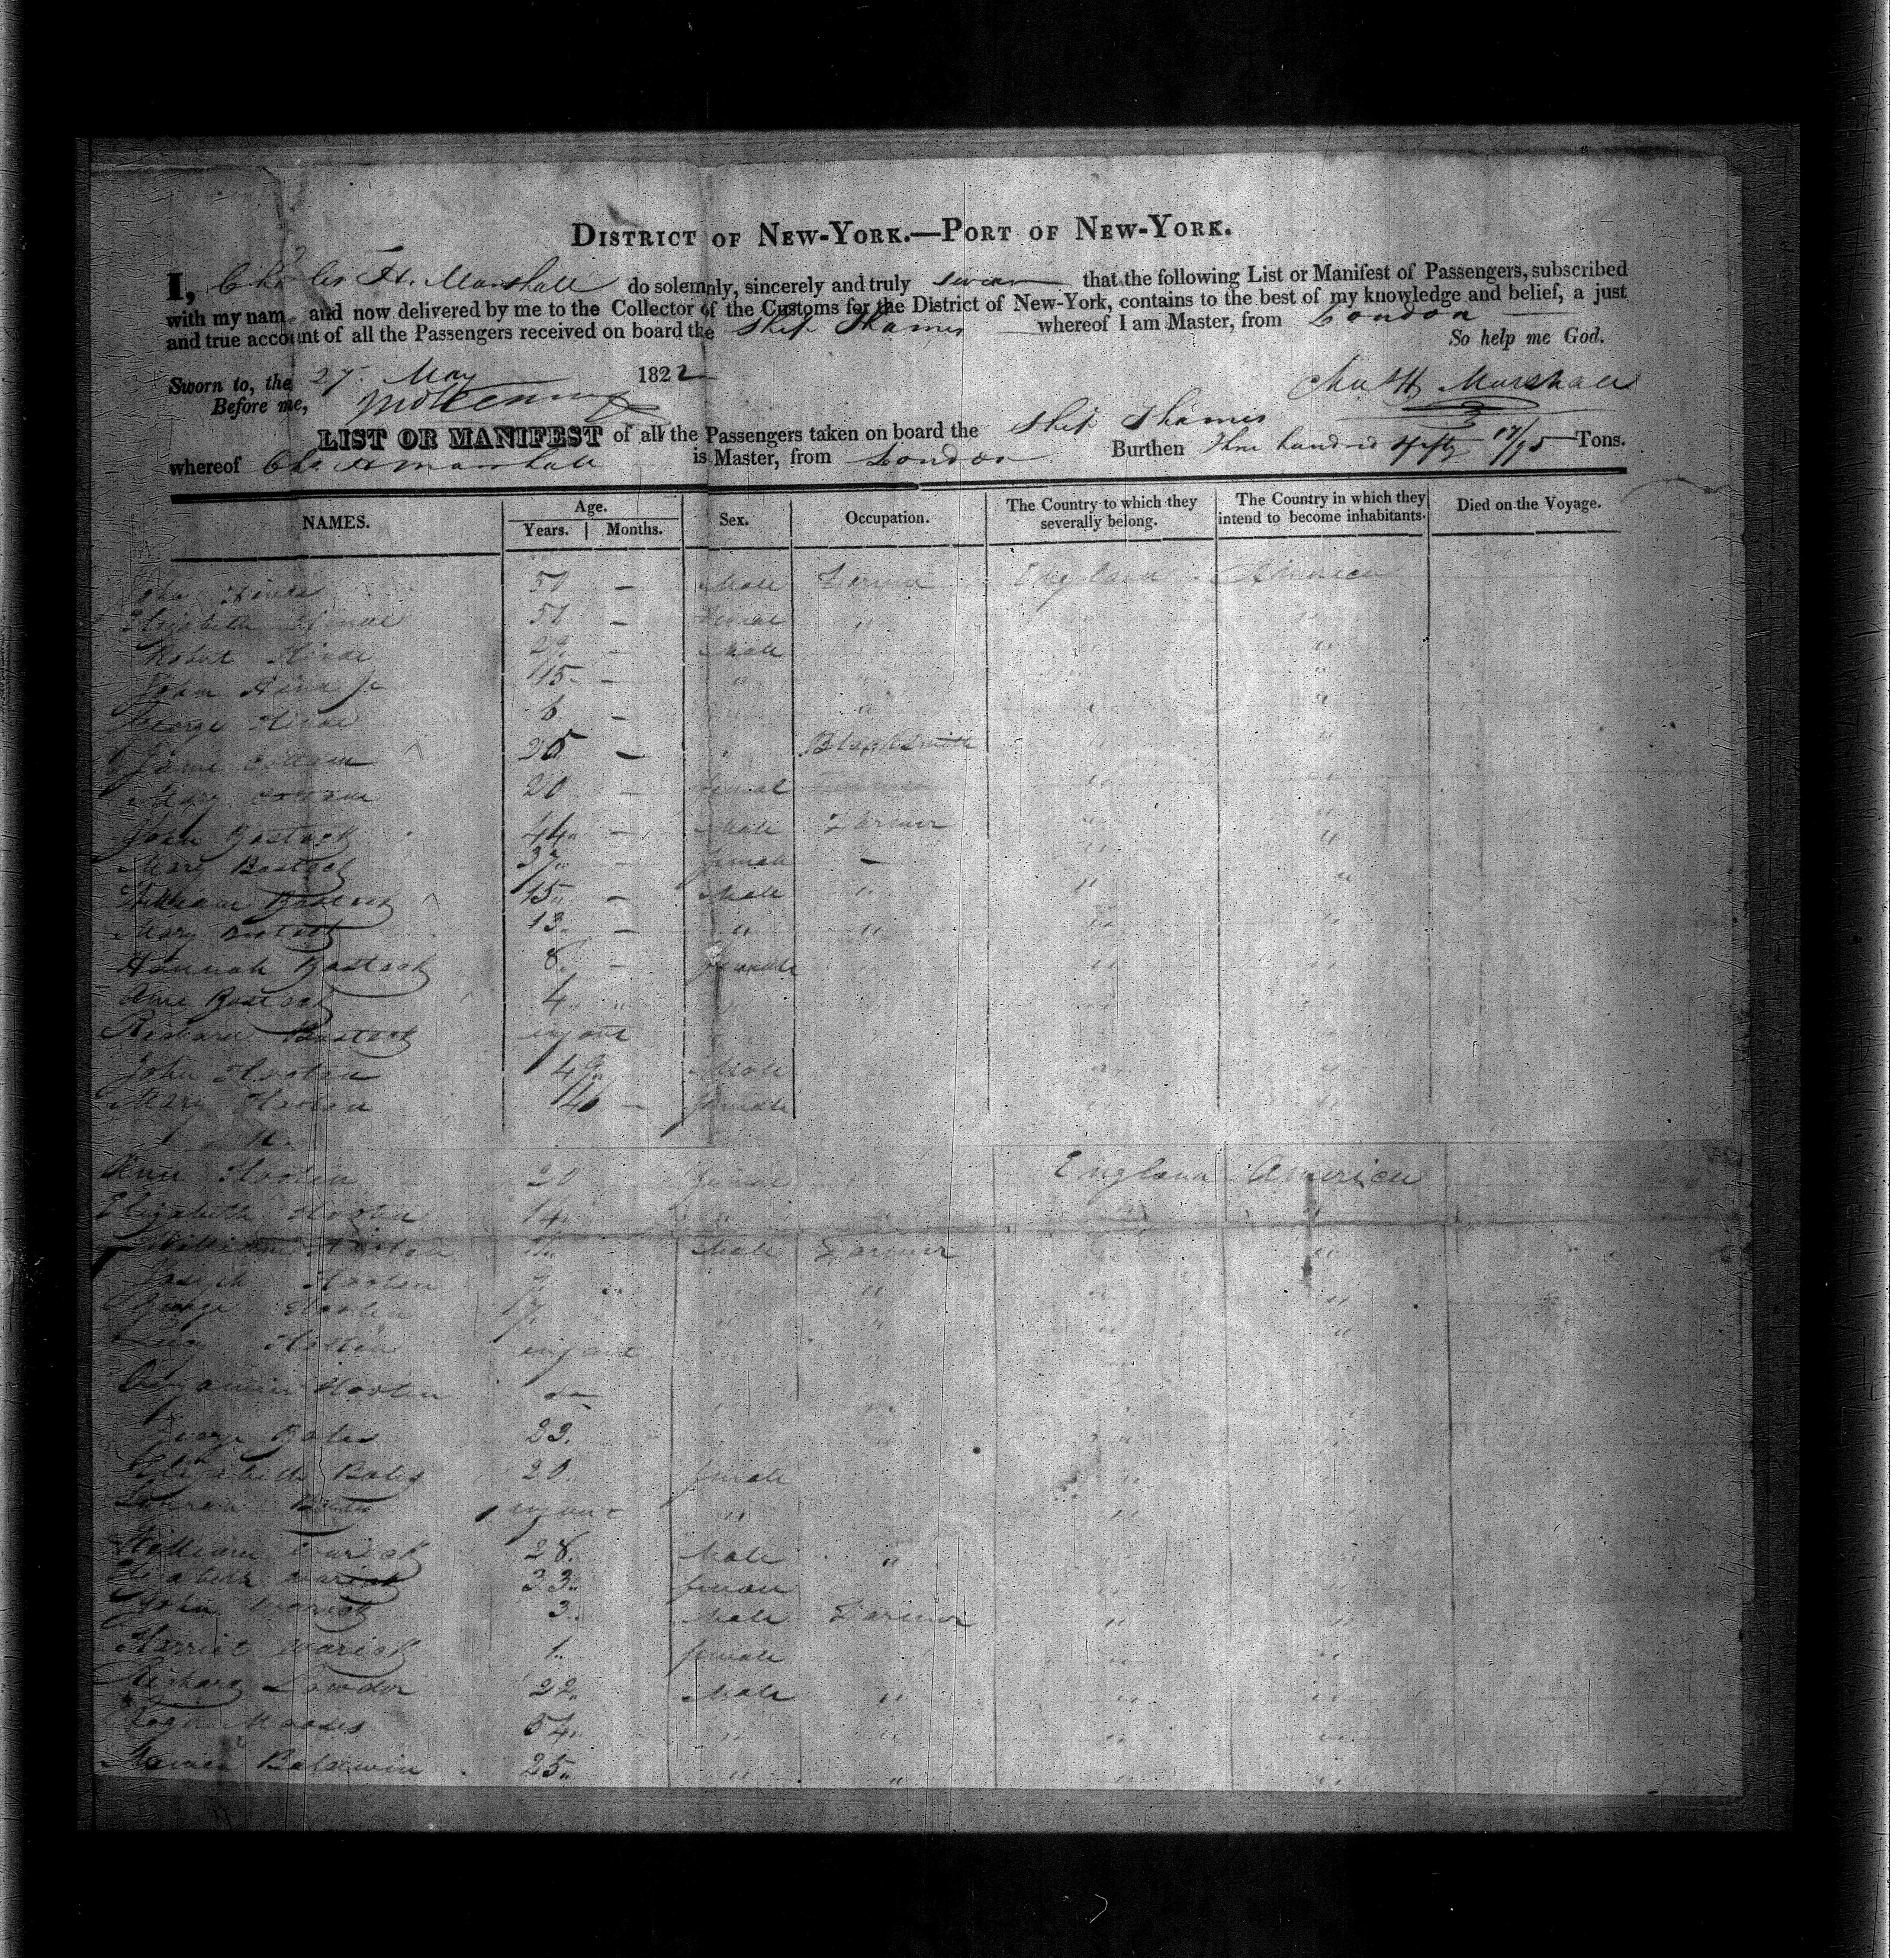 DISTRICT OF NEW-YORK.—PORT OF NEW-YORK.
I, Charles H. Marshall do solemnly, sincerely and truly swear that the following List or Manifest of Passengers, subscribed
with my name and now delivered by me to the Collector of the Customs for the District of New-York, contains to the best of my knowledge and belief, a just
and true account of all the Passengers received on board the Ship Thames whereof I am Master, from London
So help me God.
Sworn to, the 27 May 1822
Before me,
Chas H Marshall
LIST OR MANIFEST of all the Passengers taken on board the Ship Thames
whereof Chs H Marshall is Master, from London Burthen Three hundred fifty 17/95 Tons.
NAMES. Age. Years. Months. Sex. Occupation. The Country to which they severally belong. The Country in which they intend to become inhabitants. Died on the Voyage.
John Hinde 50 — Male Farmer England America
Elizabeth Hinde 51 — Femal " "
Robert Hinde — Male " "
John Hind Jr 15 — " " "
George Hinde 6 — " " " "
Cottam — " Blacksmith " "
Mary Cottam 20 — femal " "
John Bostock 44 — Male Farmer " "
Mary Bostock 37 — female — " "
William Bostock 15 — Male " " "
Mary Bostock 13 — " " " "
Hannah Bostock 8 — female " "
Ann Bostock 4 " " "
Richard Bostock infant
John Hooten 49 Male " "
Mary Hooten 46 — female " "
Ann Hooten 20 femal England America
Elizabeth Hooten 14 " " "
William Hooten 11 Male Farmer " "
Joseph Hooten 9 " "
George Hooten 7 " " " "
Hooten infant
Benjamin Hooten do
George Bates 23 " "
Elizabeth Bates 20 female "
Bates infant " "
William Warick 28 Male " "
Elizabeth Warick 33 female
John Warick 3 Male Farmer " "
Harriet Warick 1 female " "
Richard Lowdor 22 Male " " "
54 " " " "
Baldwin 25 " " " "